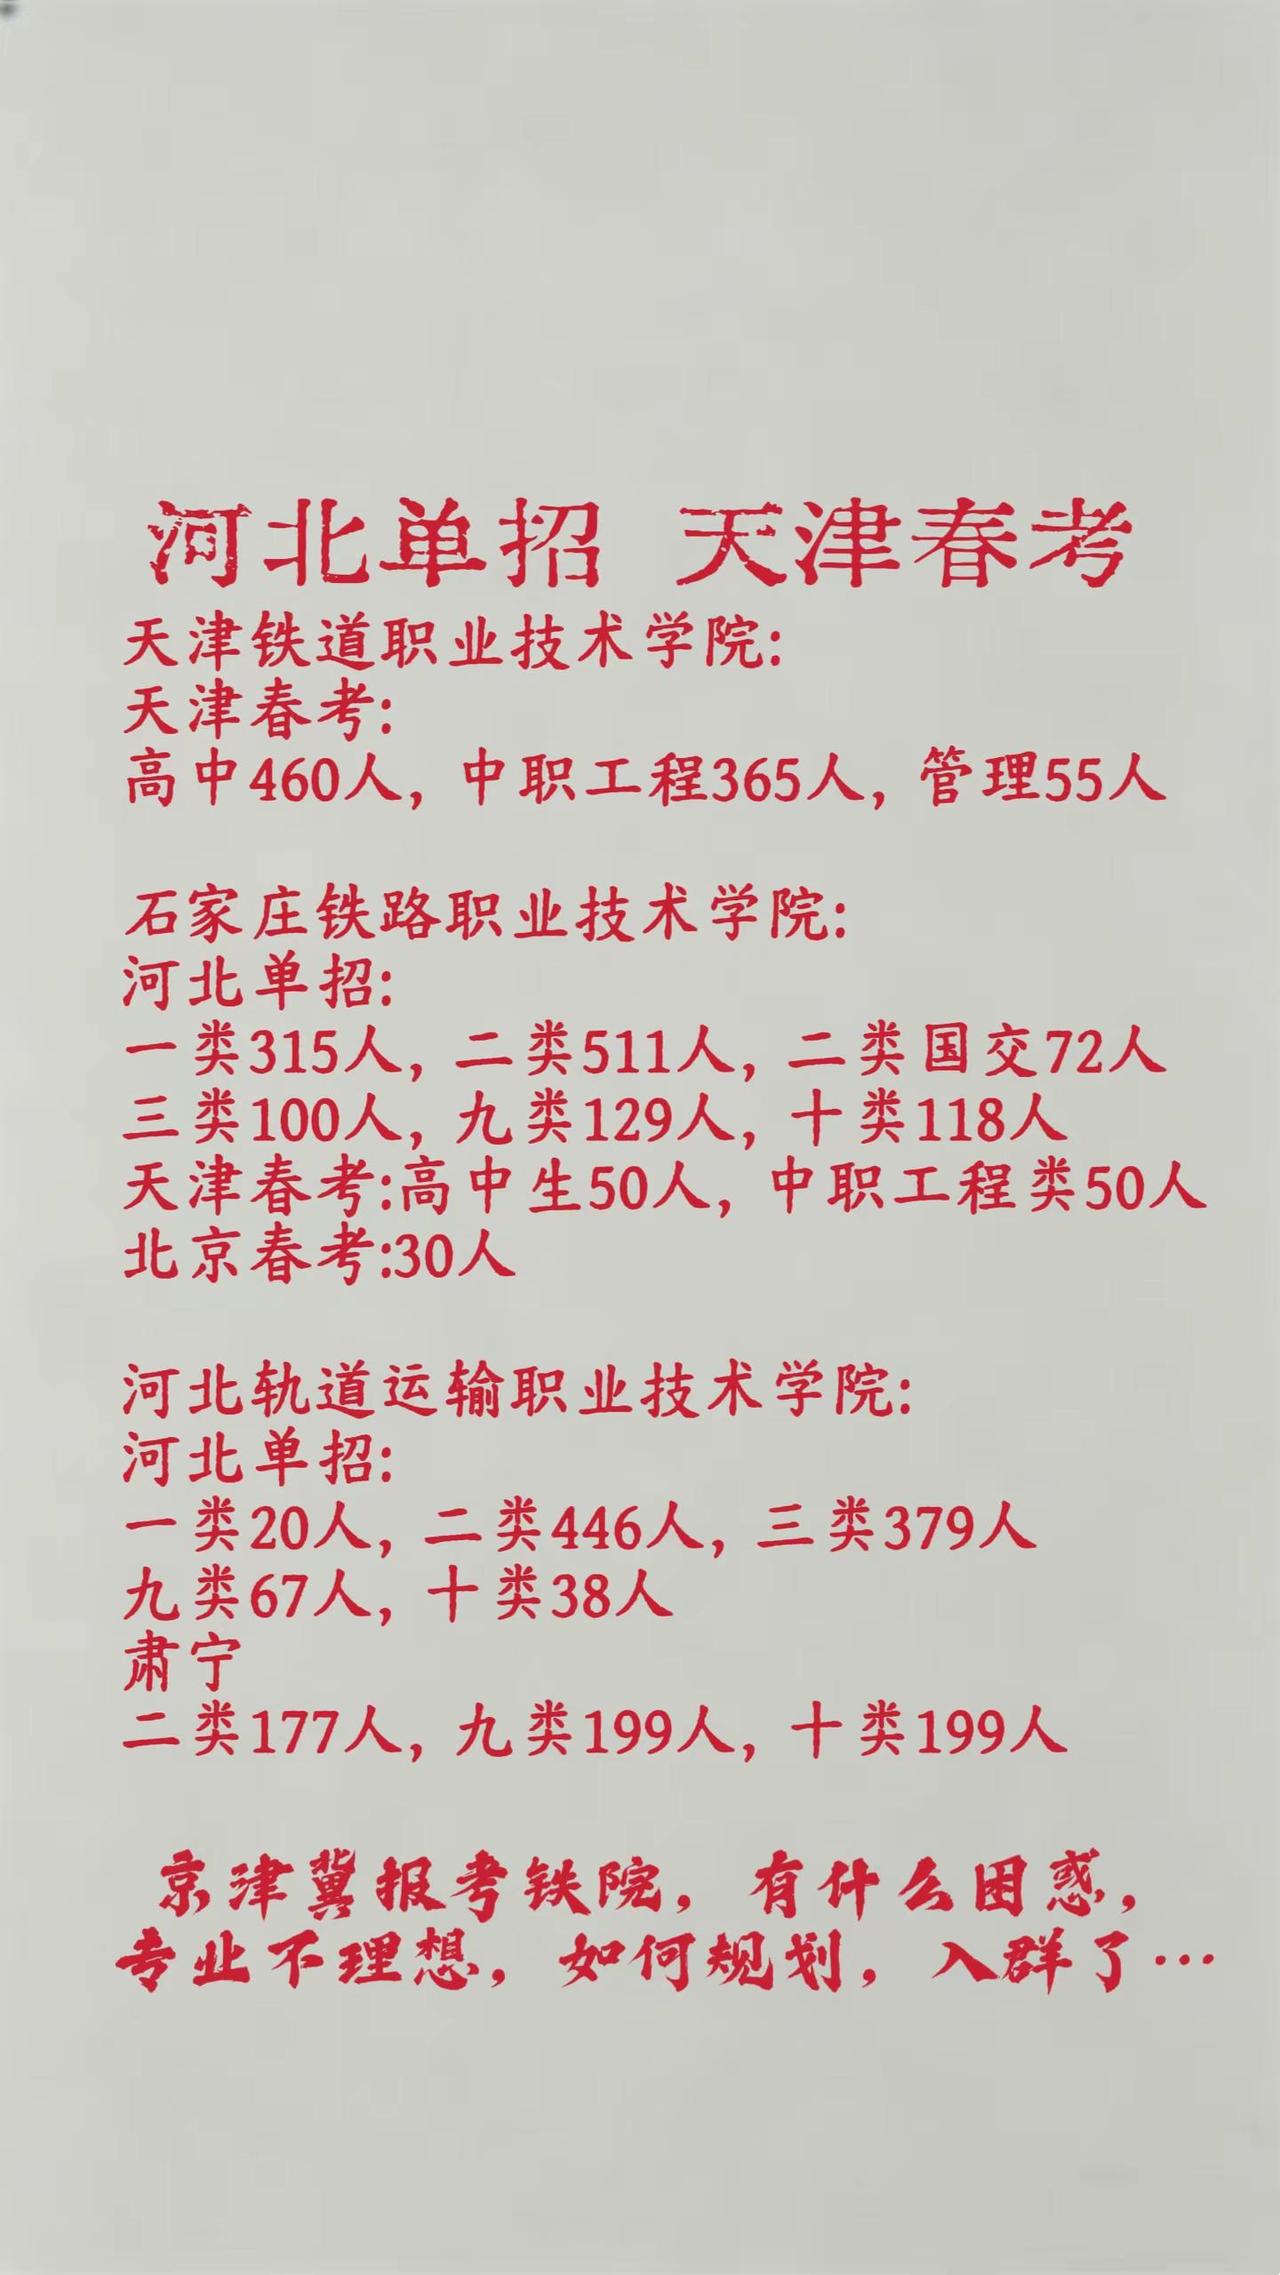 河北单招 天津春考
天津铁道职业技术学院:
天津春考:
高中460人, 中职工程365人, 管理55人
石家庄铁路职业技术学院:
河北单招:
一类315人, 二类511人, 二类国交72人
三类100人, 九类129人, 十类118人
天津春考:高中生50人, 中职工程类50人
北京春考:30人
河北轨道运输职业技术学院:
河北单招:
一类20人, 二类446人, 三类379人
九类67人, 十类38人
肃宁
二类177人, 九类199人, 十类199人
京津冀报考铁院, 有什么困惑,
专业不理想, 如何规划, 入群了…